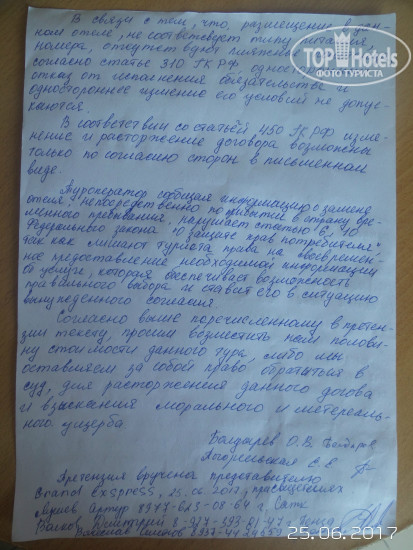 В связи с тем, что, размещение в данном
отеле, не соответствует типу питания,
номера, отсутствует
TopHotels
ФОТО ТУРИСТА
согласно статье 310 ГК РФ, односто
отказ от исполнения обязательства и
одностороннее изменение его условий не допус-
каются.
В соответствии со статьёй 450 ГК РФ изме-
нение и расторжение договора возможны
только по согласию сторон в письменном
виде.
Туроператор сообщая информацию о замене
отеля, непосредственно по прилетии в страну вре-
менного пребывания, нарушает статью 8, 10
Федерального закона "О защите прав потребителя"
так как лишают туриста права на своевремен-
ное предоставление необходимой информации
об услуге, которая обеспечивает возможность
правильного выбора и ставит его в ситуацию
вынужденного согласия.
Согласно выше перечисленному в претен-
зии тексту, просим возместить нам полови-
ну стоимости данного тура, либо мы
оставляем за собой право обратиться в
суд, для расторжения данного догова
и взыскания морального и матереаль-
ного ущерба.
Болдырев О.В.
Е.Е.
Претензия вручена представителю
Grand Express, 25.06.2017, в присутствиях
Артур
Дмитрий
25.06.2017